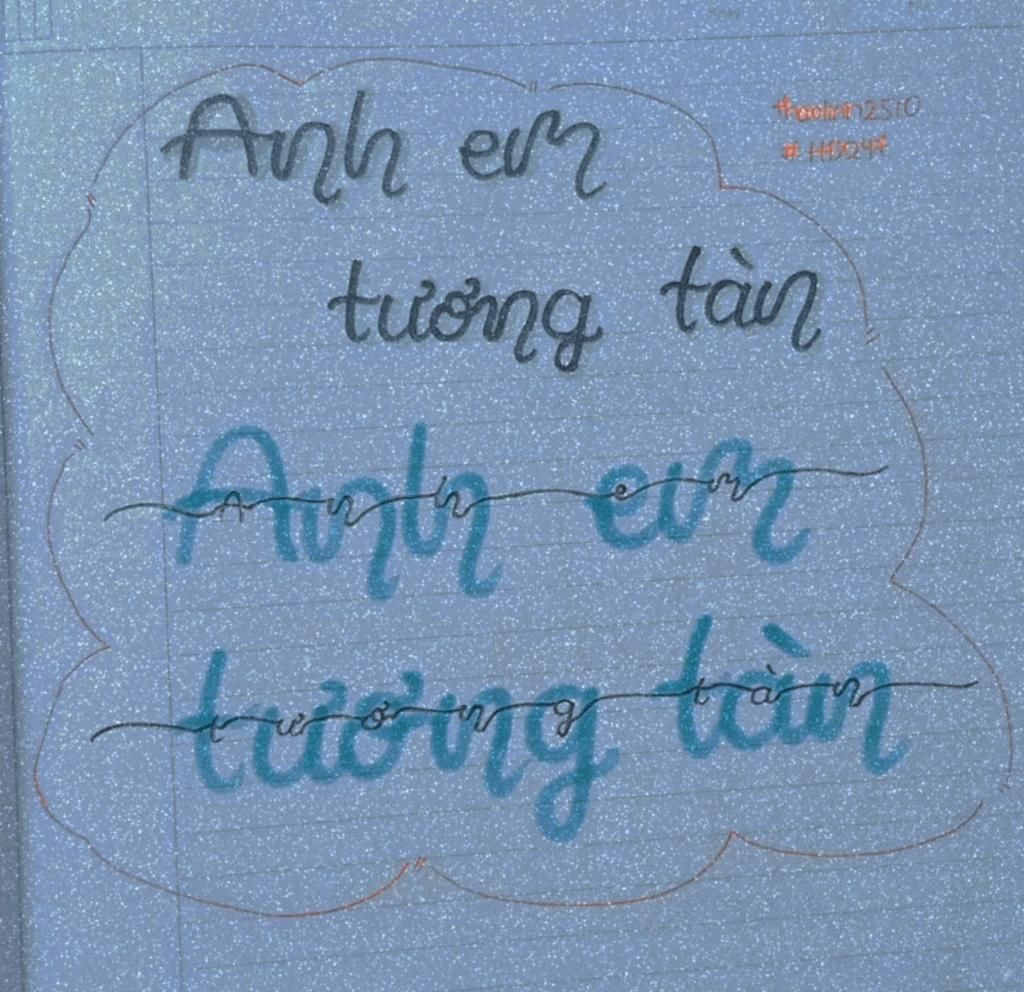 Anh em
thaolinh2510
#HD247
tương tàn
Anh em
Anh em
tương tàn
tương tàn